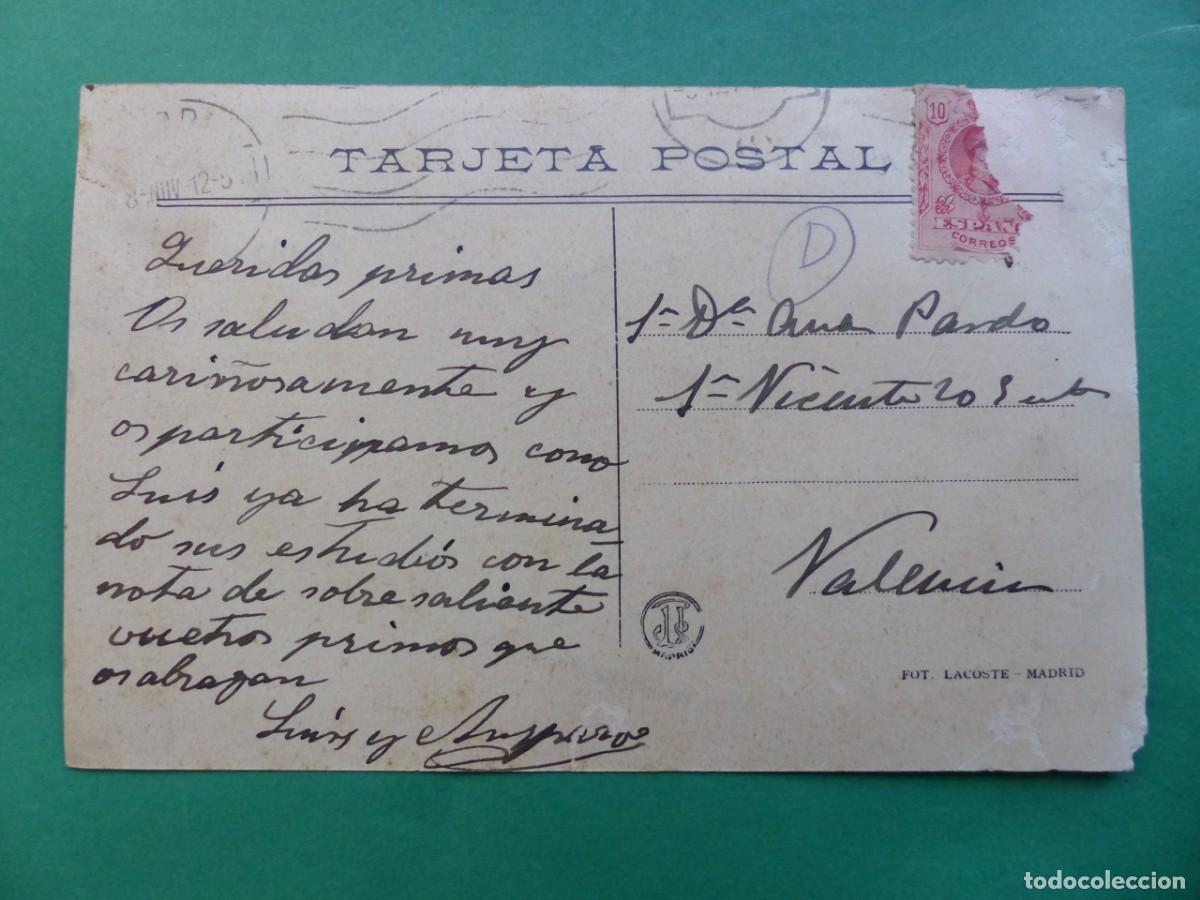 TARJETA POSTAL
8-NOV 12-5
10
ESPAÑ
CORREOS
D
Queridas primas
Os saludan muy
cariñosamente y
os participamos como
Luis ya ha termina
do sus estudios con la
nota de sobresaliente
vuetros primos que
os abrazan
Luis y Amparo
Sª Dª Ana Pardo
Sⁿ Vicente 203
Valencia
MADRID
FOT. LACOSTE - MADRID
todocoleccion